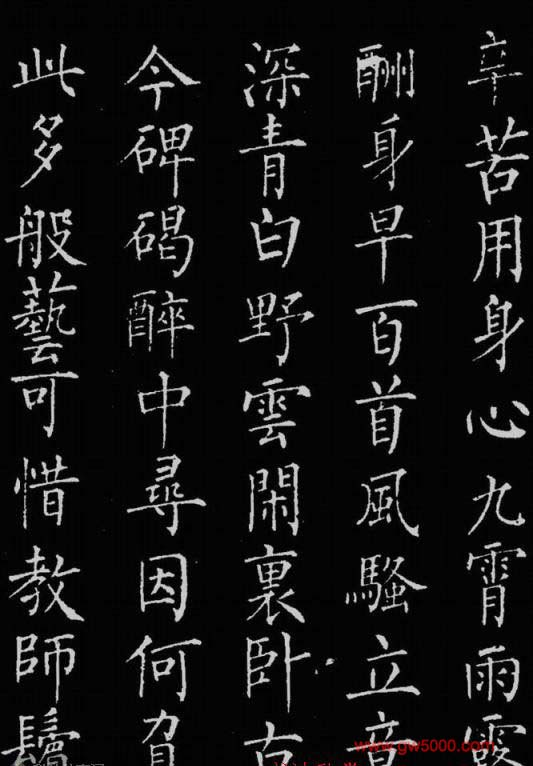 辛苦用身心九霄雨露
酬身早百首風騷立意
深青白野雲閑裏卧古
今碑碣醉中尋因何負
此多般藝可惜教師鬢
www.gw5000.com